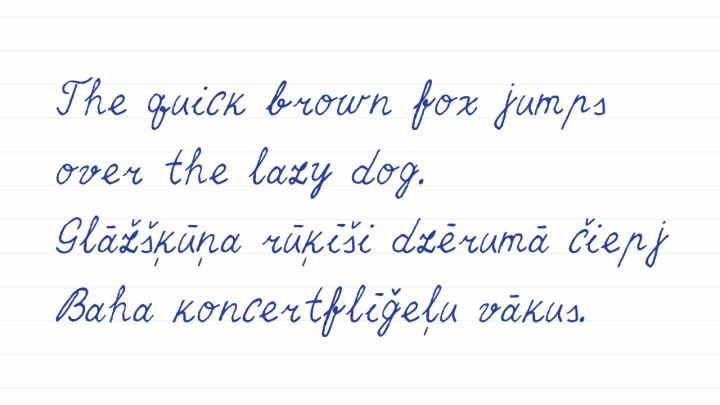 The quick brown fox jumps
over the lazy dog.
Glāžšķūņa rūķīši dzērumā čiepj
Baha koncertflīģeļu vākus.